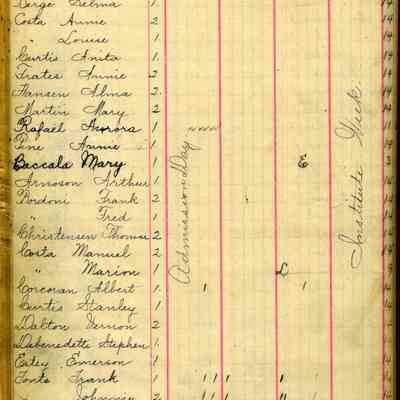 Berge Selma 1. 14
Costa Annie 2 14
" Louise 1 14
Curtis Anita 1. 14
Frates Annie 2 14
Hansen Alma 2. 14
Martin Mary 2 14
Rafael Aurora 1 11
Pine Annie 1 14
Baccala Mary 1 E 3
Arnoson Arthur 1
Bordoni Frank 2 14
" Fred 1 14
Christensen Thomas 2
Costa Manuel 2 14
" Marion 1 L
Corcoran Albert 1 1 1
Curtis Stanley 1.
Dalton Vernon 2
Debenedette Stephen 1.
Estey Emerson 1
Fonte Frank 1 1 1 1 1
" Johnnie 2
Admission Day
Institute Week